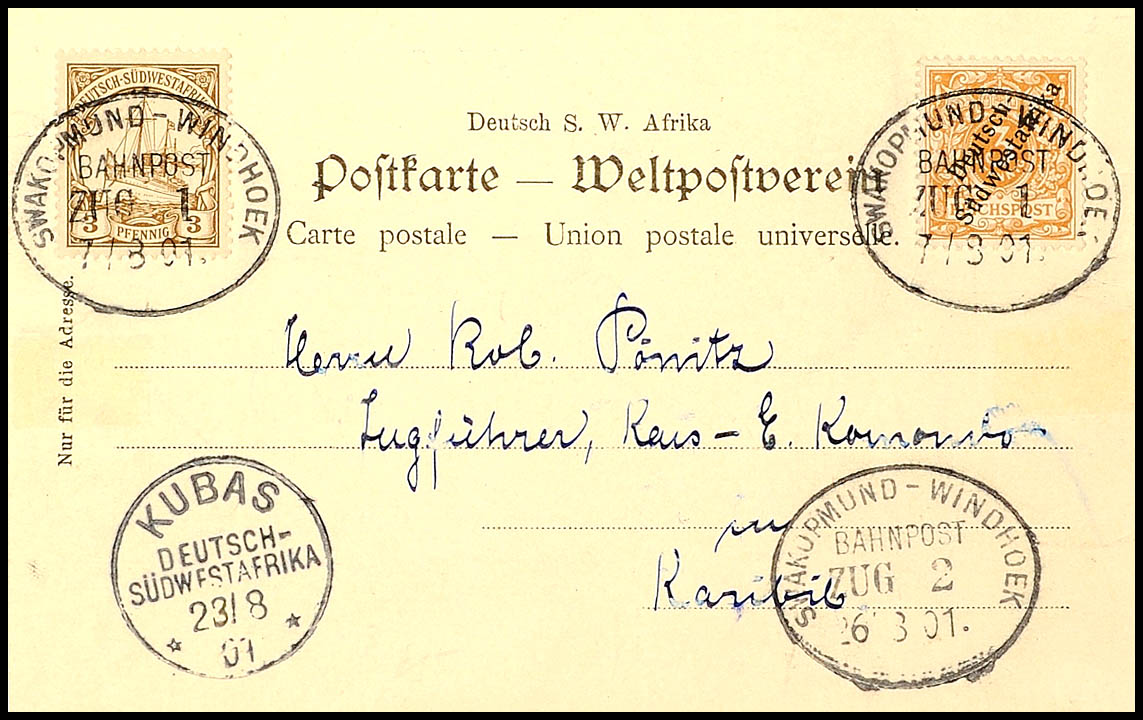 DEUTSCH-SÜDWESTAFRIKA
3 PFENNIG 3
SWAKOPMUND-WINDHOEK
BAHNPOST
ZUG 1
7/8 01.
Deutsch S. W. Afrika
Postkarte — Weltpostverein
Carte postale — Union postale universelle.
Deutsch-
Südwestafrika
3
REICHSPOST
SWAKOPMUND-WINDHOEK
BAHNPOST
ZUG 1
7/8 01.
Nur für die Adresse.
Herrn Rob. Pönitz
Zugführer, Kais-E. Komando
in
Karibib
KUBAS
DEUTSCH-
SÜDWESTAFRIKA
23/8
* 01 *
SWAKOPMUND-WINDHOEK
BAHNPOST
ZUG 2
26 8 01.